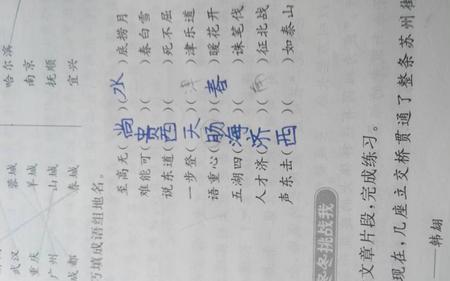 武汉 蓉城 哈尔滨
重庆 羊城 南京
广州 山城 抚顺
成都 春城 宜兴
巧填成语组地名。
至高无(尚)(水)底捞月
难能可(贵)( )春白雪
说东道(西)( )死不屈
一步登(天)( )津乐道
语重心(肠)(春)暖花开
五湖四(海)( )诛笔伐
人才济(济)( )征北战
声东击(西)( )如泰山
冬挑战我
文章片段,完成练习。
现在,几座立交桥贯通了整条苏州街
——韩翃